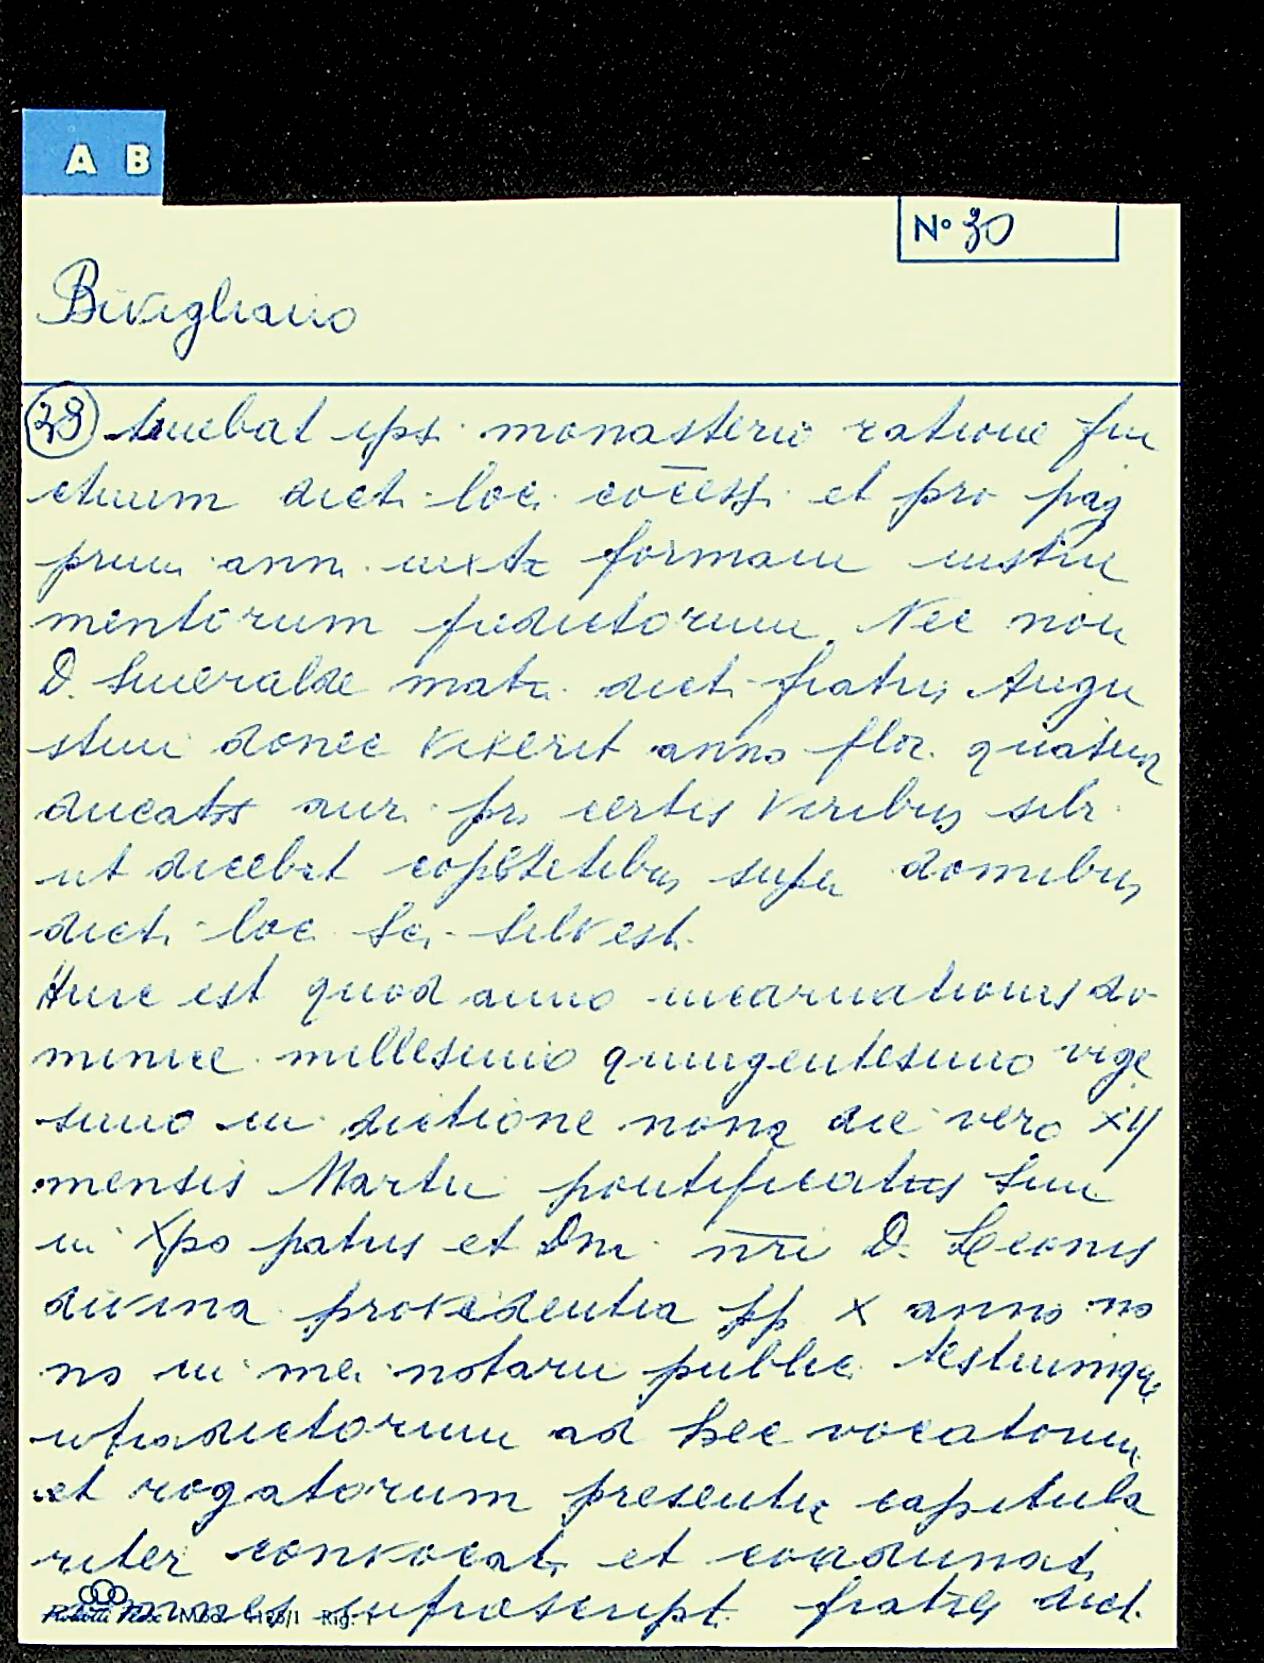 A B
N° 30
Bivigliano
(29) tenebat ips. monasterio ratione fru
ctuum dict. loc. cōcess. et pro pag
prim. ann. iuxta formam instru
mentorum predictorum. Nec non
D. Smeralde mat. dict. fratris Augu
stini donec vixerit anno flor. quatuor
ducatos aur. pr. certis viribus sibi
ut dicebat super domibus
dict. loc. Sc. Silvest.
Hinc est quod anno incarnationis do
minice millesimo quingentesimo vige
simo in dictione nona die vero xij
mensis Martii pontificatus Sm.
in Xpo patris et Dni. nr̄i D. Leonis
divina providentia pp. x anno no
no in mei notarii public. testiumque
infradictorum ad hec vocatorum
et rogatorum presentia capitula
riter convocat. et coadunat.
omnes infrascript. fratres dict.
Mod. 1128/1 Rig. 1